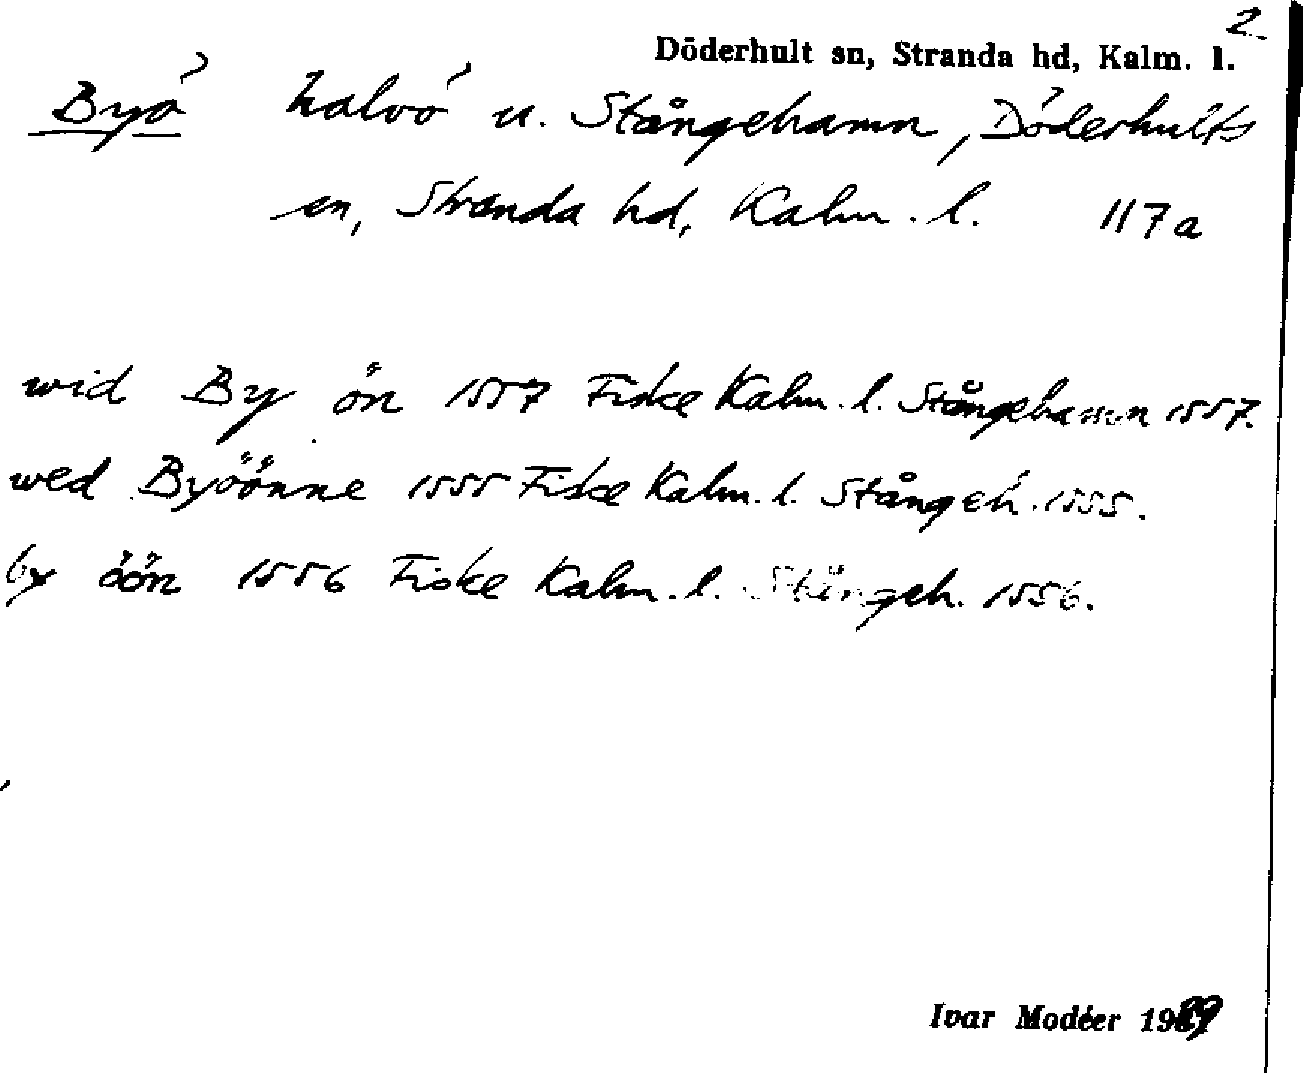 2
Döderhult sn, Stranda hd, Kalm. l.
Byö halvö u. Stångehamn, Döderhults
sn, Stranda hd, Kalm. l. 117a
wid By ön 1557 Fiske Kalm. l. Stångehamn 1557.
wed Byöönne 1555 Fiske Kalm. l. Stångeh. 1555.
by öön 1556 Fiske Kalm. l. Stångeh. 1556.
Ivar Modéer 19